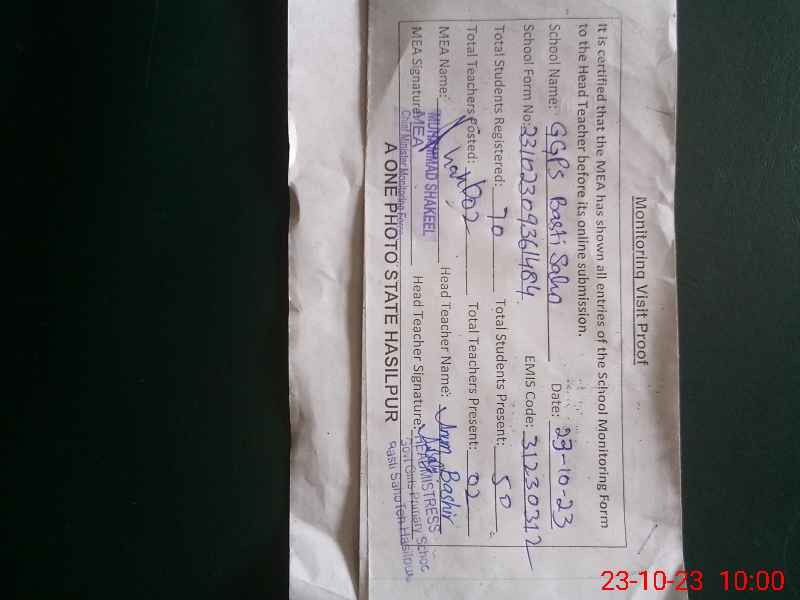 Monitoring Visit Proof
It is certified that the MEA has shown all entries of the School Monitoring Form
to the Head Teacher before its online submission.
School Name: GGPS Basti Saho Date: 23-10-23
School Form No: 23102309361484 EMIS Code: 31230312
Total Students Registered: 70 Total Students Present: 50
Total Teachers Posted: 02 Total Teachers Present: 02
MEA Name: MUHAMMAD SHAKEEL Head Teacher Name: Anm Bashir
MEA Signature: MEA Head Teacher Signature: HEADMISTRESS
Chief Minister Monitoring Force Govt Girls Primary School
Basti Saho Teh Hasilpur
A ONE PHOTO STATE HASILPUR
23-10-23 10:00